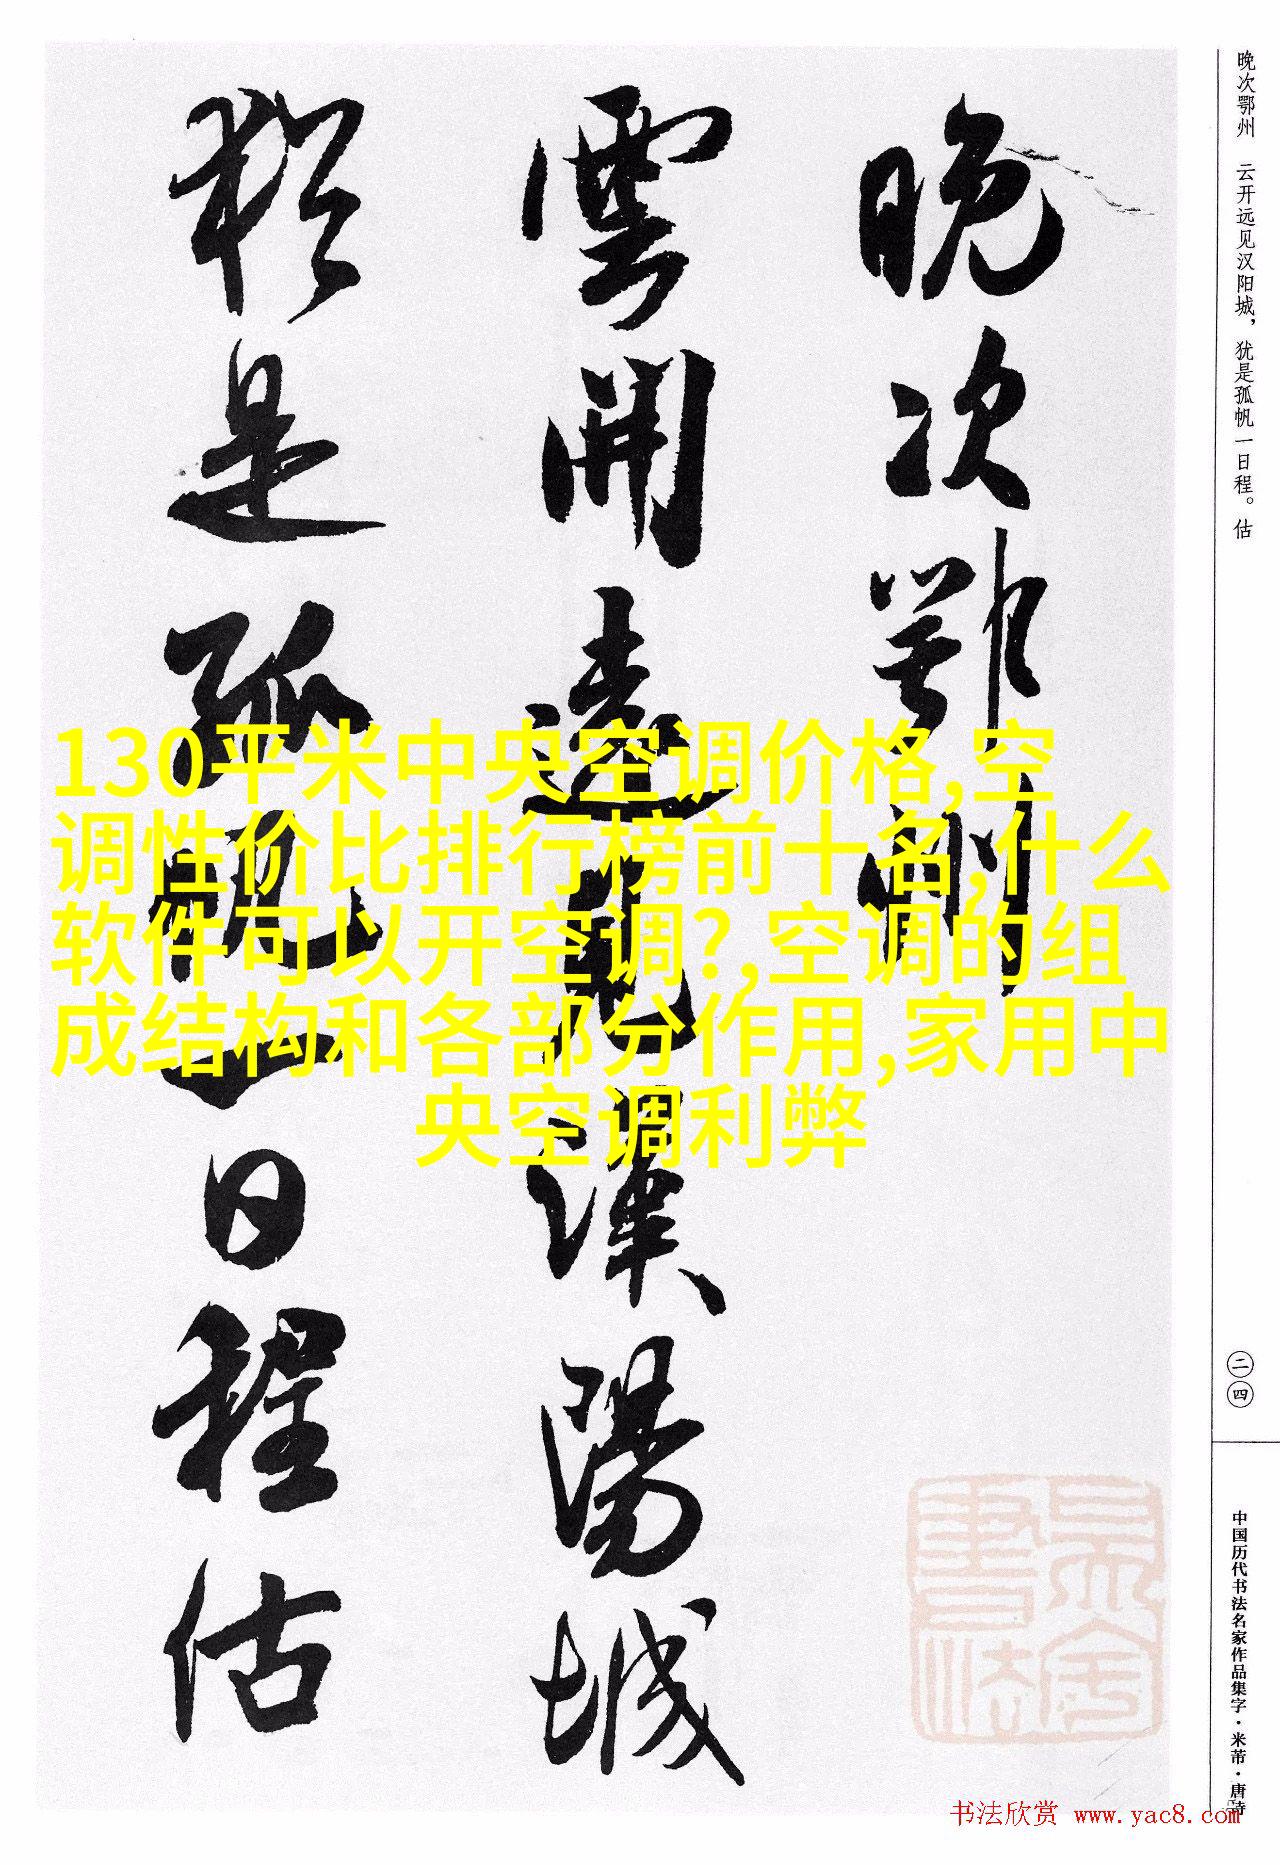 晚次鄂州　云开远见汉阳城，犹是孤帆一日程。估
晚次鄂州
雲開遠見漢陽城
猶是孤帆一日程估
130平米中央空调价格,空
调性价比排行榜前十名,什么
软件可以开空调?,空调的组
成结构和各部分作用,家用中
央空调利弊
二四
中国历代书法名家作品集字·米芾·唐诗
书法欣赏 www.yac8.com